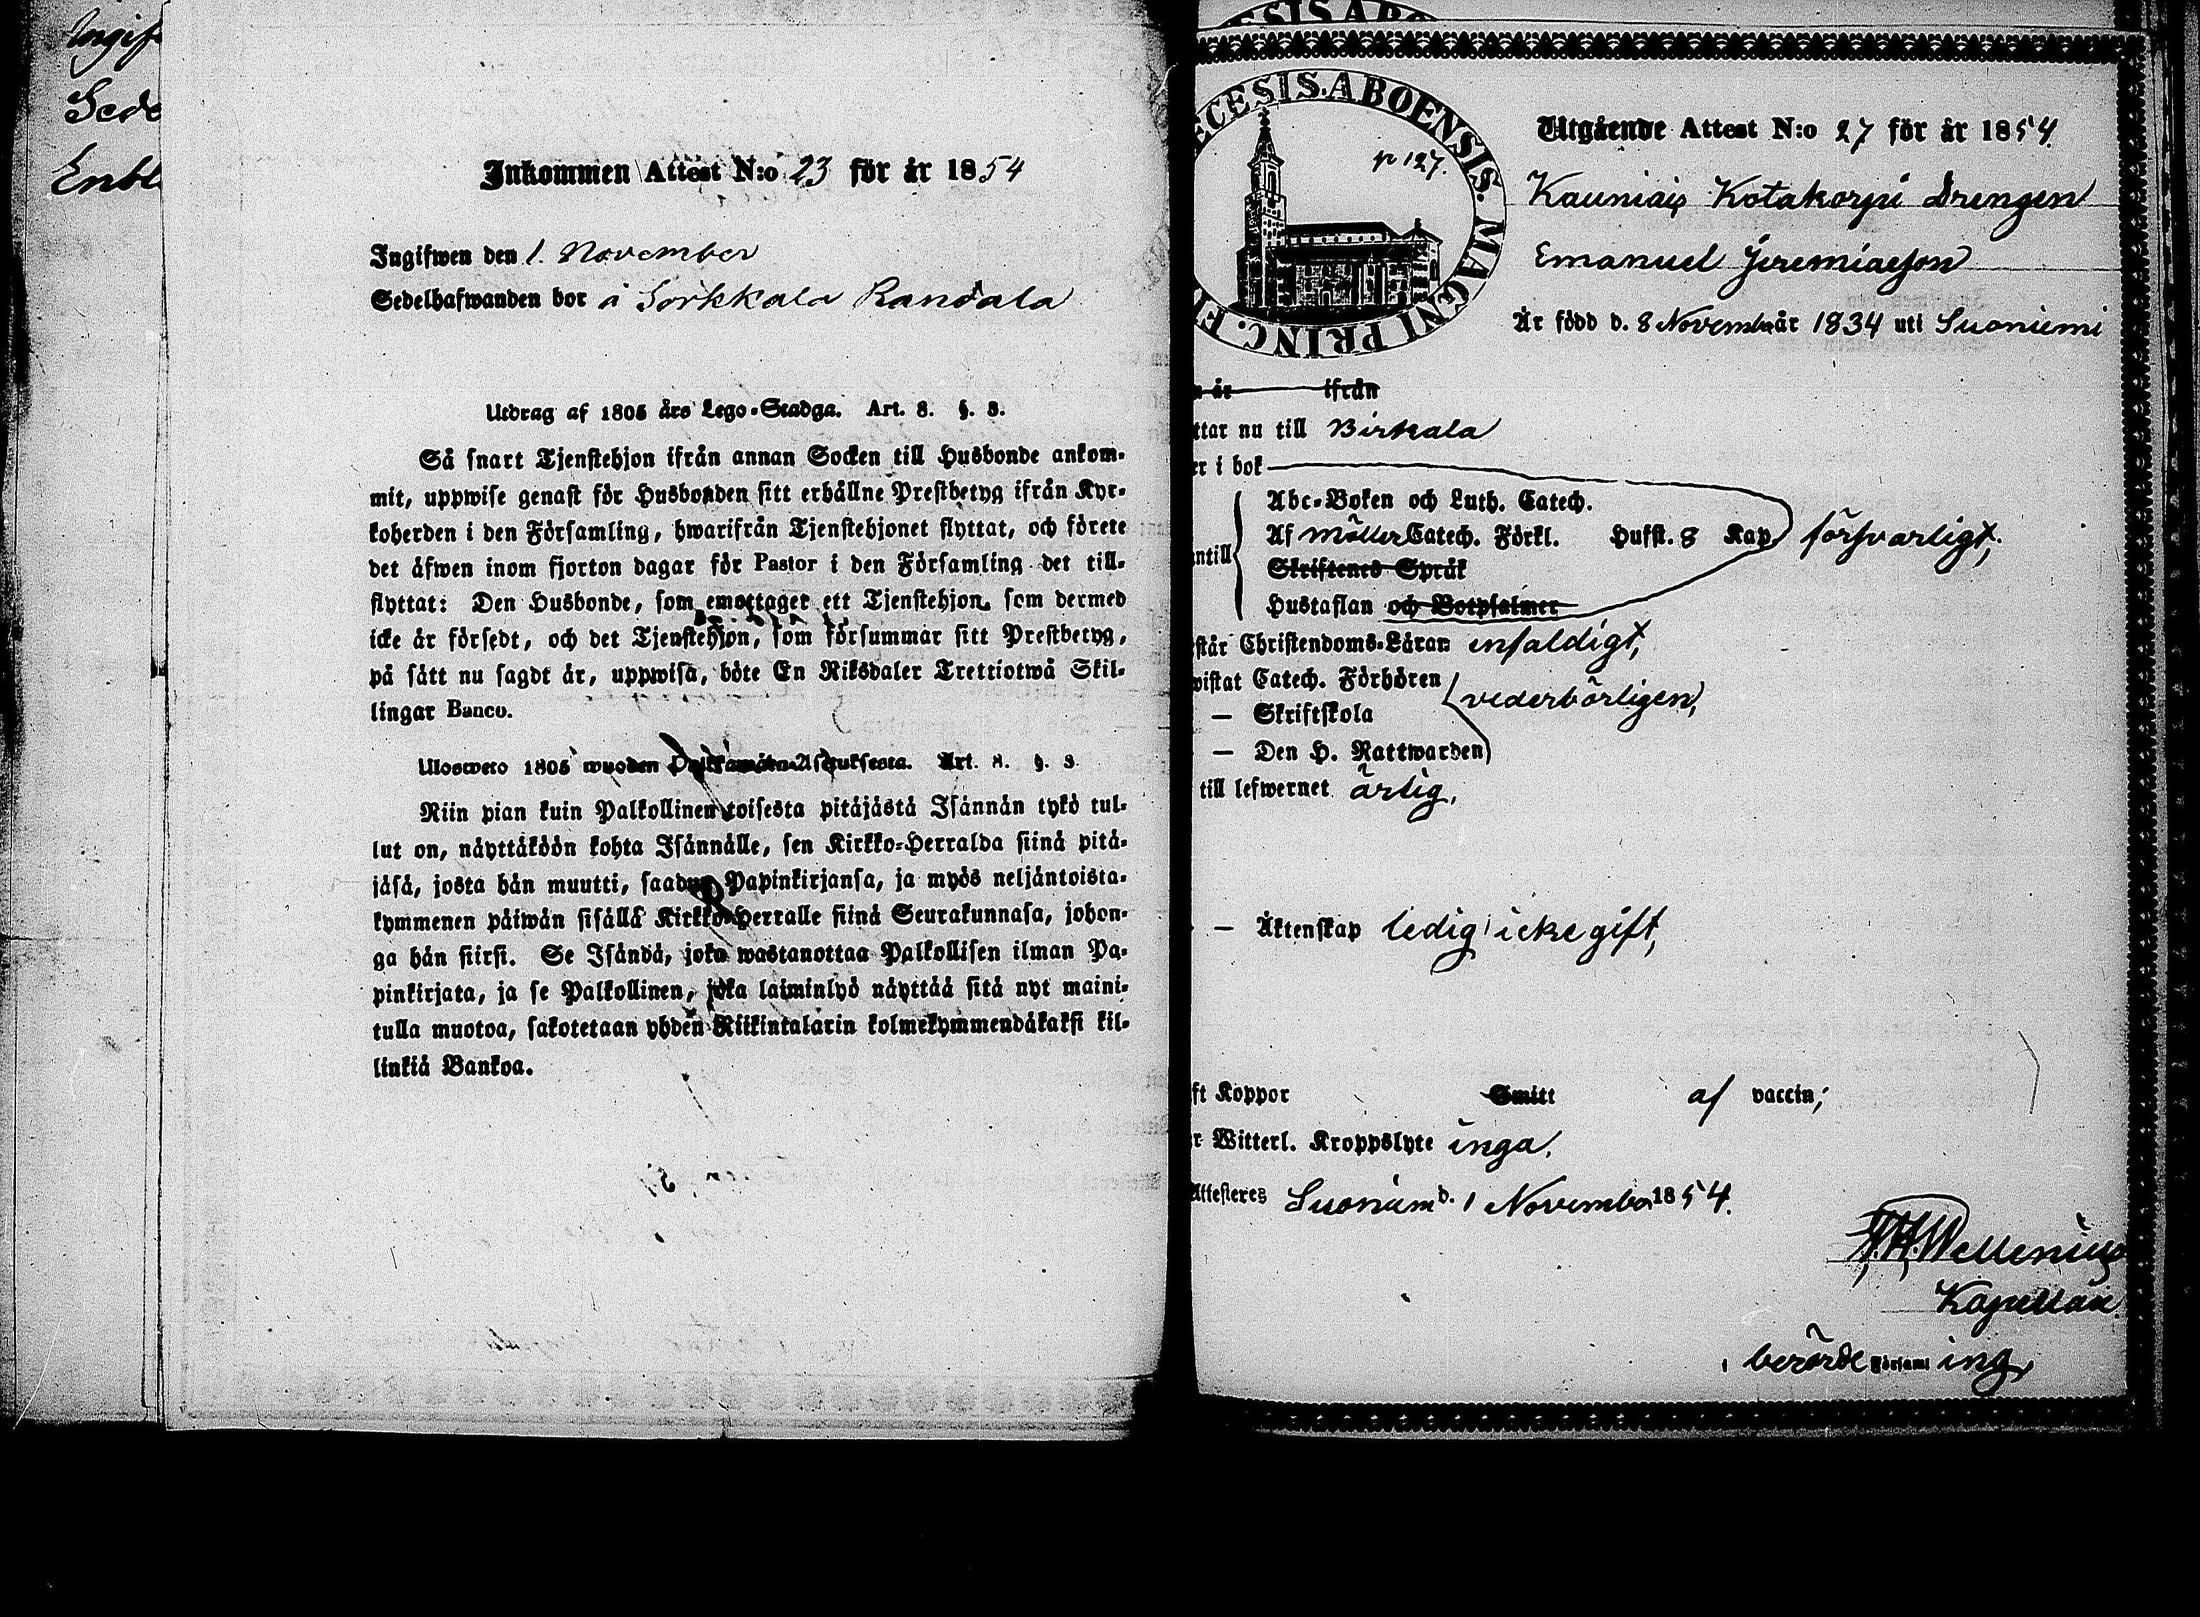 Ingif
Sede
Enbl
Inkommen Attest N:o 23 för år 1854
Ingifwen den 1. November
Sedelhafwanden bor å Sorkkala Randala
Utdrag af 1805 års Lego-Stadga. Art. 8. §. 3.
Så snart Tjenstehjon ifrån annan Socken till Husbonde ankom-
mit, uppwise genast för Husbonden sitt erhållne Prestbetyg ifrån Kyr-
koherden i den Församling, hwarifrån Tjenstehjonet flyttat, och förete
det äfwen inom fjorton dagar för Pastor i den Församling det till-
flyttat: Den Husbonde, som emottager ett Tjenstehjon, som dermed
icke är försedt, och det Tjenstehjon, som försummar sitt Prestbetyg,
på sätt nu sagdt är, uppwisa, böte En Riksdaler Trettiotwå Skil-
lingar Banco.
Ulosweto 1805 wuoden Palkkamisen-Asetuksesta. Art. 8. §. 3
Niin pian kuin Palkollinen toisesta pitäjästä Isännän tykö tul-
lut on, näyttäköön kohta Isännälle, sen Kirkko-Herralda siinä pitä-
jäsä, josta hän muutti, saadun Papinkirjansa, ja myös neljäntoista-
kymmenen päiwän sisällä Kirkko-Herralle siinä Seurakunnasa, johon-
ga hän siirsi. Se Isändä, joka wastanottaa Palkollisen ilman Pa-
pinkirjata, ja se Palkollinen, joka laiminlyö näyttää sitä nyt maini-
tulla muotoa, sakotetaan yhden Riikintalarin kolmekymmendäkaksi kil-
linkiä Bankoa.
ECESIS. ABOENSIS. MAGNI PRINC. F
p 127.
Utgående Attest N:o 27 för år 1854.
Kauniais Kotakorpi Drengen
Emanuel Jeremiaesson
Är född d. 8 November år 1834 uti Suoniemi
n år ifrån
ttar nu till Birkala
er i bok
Abc-Boken och Luth. Catech.
Af Möller Catech. Förkl. Husst. 8 Kap försvarligt,
antill
Skriftenes Språk
Hustaflan och Botpsalmer
står Christendoms-Läran enfaldigt,
wistat Catech. Förhören vederbörligen,
— Skriftskola
— Den H. Nattwarden
till lefwernet ärlig,
— Äktenskap ledig icke gift,
ft Koppor Smitt af vaccin;
r Witterl. Kroppslyte inga,
Attesteres Suoniem d. 1 November 1854.
Wellenius
Kapellan
i berörde Församl ing